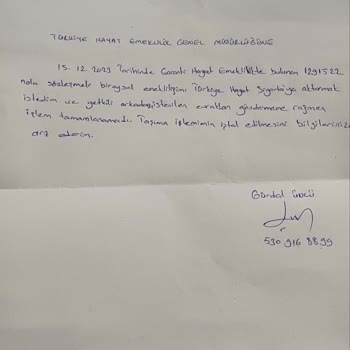 TÜRKİYE HAYAT EMEKLİLİK GENEL MÜDÜRLÜĞÜNE
15.12.2023 Tarihinde Garanti Hayat Emeklilikte bulunan 1291522
nolu sözleşmalı bireysel emekliliğimi Türkiye Hayat Sigortaya aktarmak
istedim ve yetkili arkadaş istenilen evrakları göndermeme rağmen
İşlem tamamlanamadı. Taşıma işlemimin iptal edilmesini bilgilerinize
arz ederim.
Gürdal
530 916 8899